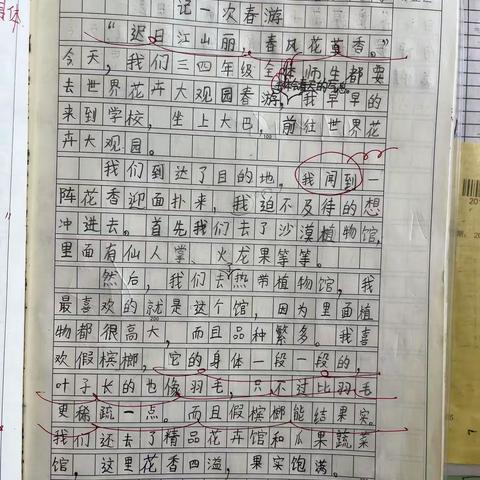 体
记一次春游
“迟日江山丽,春风花草香。”
今天,我们三四年级全体师生都要
去世界花卉大观园春游,我早早的
来到学校,坐上大巴,前往世界花
卉大观园。
我们到达了目的地,我闻到一
阵花香迎面扑来,我迫不及待的想
冲进去。首先我们去了沙漠植物馆,
里面有仙人掌、火龙果等等。
然后,我们去热带植物馆,我
最喜欢的就是这个馆,因为里面植
物都很高大,而且品种繁多。我喜
欢假槟榔,它的身体一段一段的,
叶子长的也像羽毛,只不过比羽毛
更稀疏一点。而且假槟榔能结果实。
我们还去了精品花卉馆和瓜果蔬菜
馆,这里花香四溢,果实饱满。